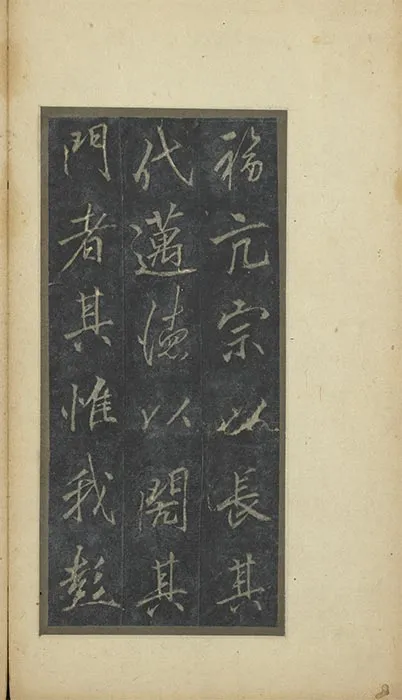 務亢宗以長其
代邁德以閎其
門者其惟我彭